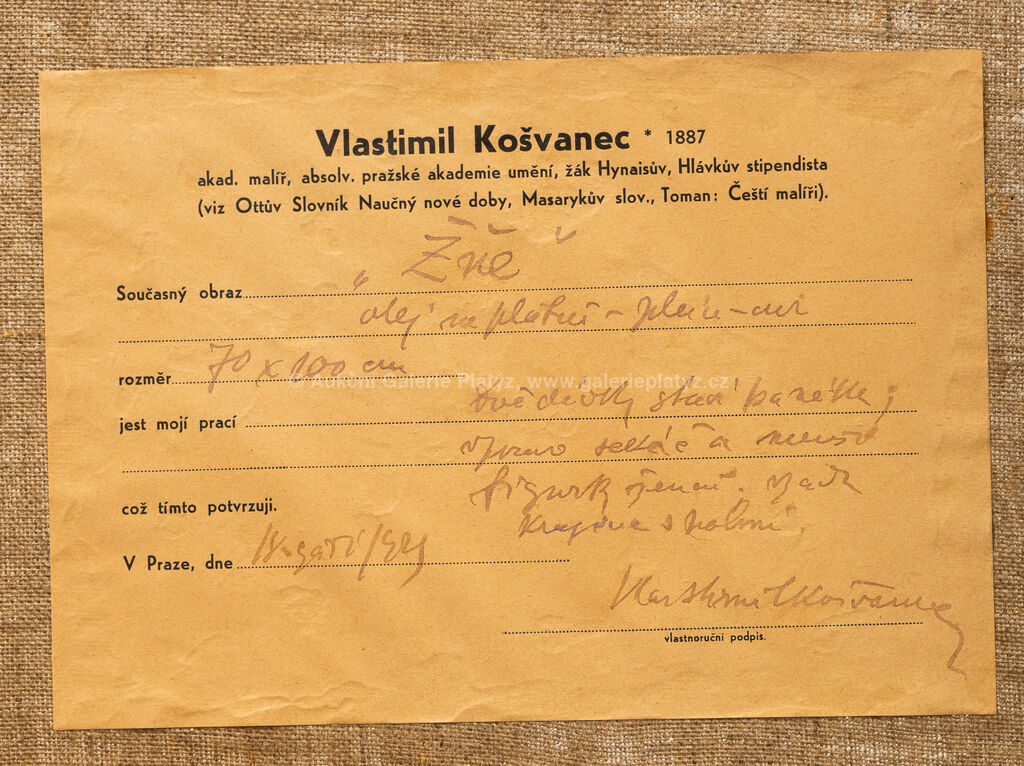 Vlastimil Košvanec * 1887
akad. malíř, absolv. pražské akademie umění, žák Hynaisův, Hlávkův stipendista
(viz Ottův Slovník Naučný nové doby, Masarykův slov., Toman: Čeští malíři).
Současný obraz „Žně“
olej na plátně - plein-air
rozměr 70 x 100 cm
© Aukční Galerie Platýz, www.galerieplatyz.cz
jest mojí prací
a
což tímto potvrzuji. figurky
krajina s
V Praze, dne 18. září
Vlastimil Košvanec
vlastnoruční podpis.